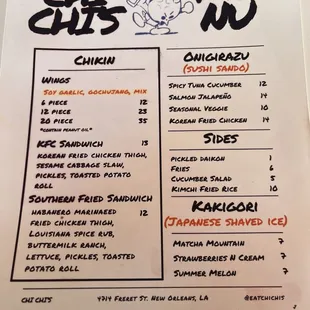 CHI CHIS
NU
CHIKIN
WINGS
SOY GARLIC, GOCHUJANG, MIX
6 PIECE 12
12 PIECE 23
20 PIECE 35
*CONTAIN PEANUT OIL*
KFC SANDWICH 13
KOREAN FRIED CHICKEN THIGH,
SESAME CABBAGE SLAW,
PICKLES, TOASTED POTATO
ROLL
SOUTHERN FRIED SANDWICH
HABANERO MARINAEED 12
FRIED CHICKEN THIGH,
LOUISIANA SPICE RUB,
BUTTERMILK RANCH,
LETTUCE, PICKLES, TOASTED
POTATO ROLL
ONIGIRAZU
(SUSHI SANDO)
SPICY TUNA CUCUMBER 12
SALMON JALAPEÑO 14
SEASONAL VEGGIE 10
KOREAN FRIED CHICKEN 14
SIDES
PICKLED DAIKON 1
FRIES 6
CUCUMBER SALAD 5
KIMCHI FRIED RICE 10
KAKIGORI
(JAPANESE SHAVED ICE)
MATCHA MOUNTAIN 7
STRAWBERRIES N CREAM 7
SUMMER MELON 7
CHI CHI'S 4714 FRERET ST. NEW ORLEANS, LA @EATCHICHIS